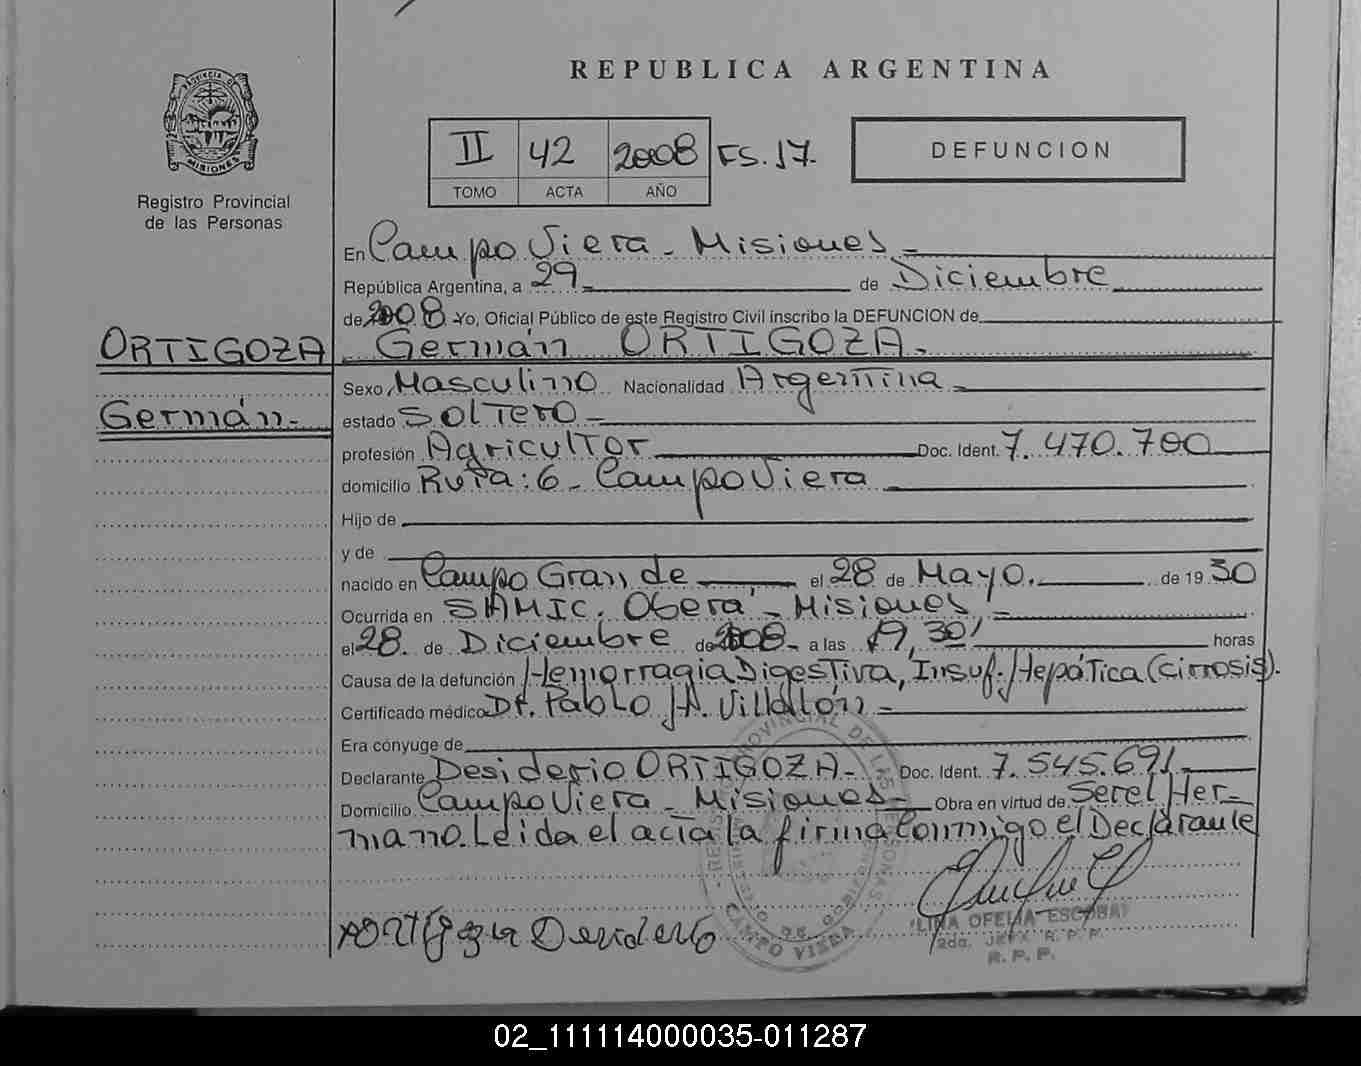 PROVINCIA DE
MISIONES
Registro Provincial
de las Personas
REPUBLICA ARGENTINA
II 42 2008 FS. 17.
TOMO ACTA AÑO
DEFUNCION
En Campo Viera - Misiones -
República Argentina, a 29 - de Diciembre
de 2008 Yo, Oficial Público de este Registro Civil inscribo la DEFUNCION de
ORTIGOZA Germán ORTIGOZA.
Sexo Masculino Nacionalidad Argentina -
Germán - estado SOLTERO -
profesión Agricultor Doc. Ident. 7.470.700
domicilio Ruta: 6 - Campo Viera
Hijo de
y de
nacido en Campo Grande el 28 de Mayo. de 19 30
Ocurrida en SAMIC. Oberá - Misiones -
el 28. de Diciembre de 2008 - a las 19,30' horas
Causa de la defunción Hemorragia Digestiva, Insuf. Hepática (cirrosis).
Certificado médico Dr. Pablo A. Villalón -
Era cónyuge de
Declarante Desiderio ORTIGOZA - Doc. Ident. 7.545.691 -
Domicilio Campo Viera - Misiones - Obra en virtud de Ser el Her-
mano. Leida el acta la firma Conmigo el Declarante
Ortigoza Desiderio
REGISTRO PROVINCIAL DE LAS PERSONAS
MINISTERIO DE GOBIERNO
CAMPO VIERA
LINA OFELIA ESCOBAR
2da. JEFA R.P.P.
R. P. P.
02_111114000035-011287